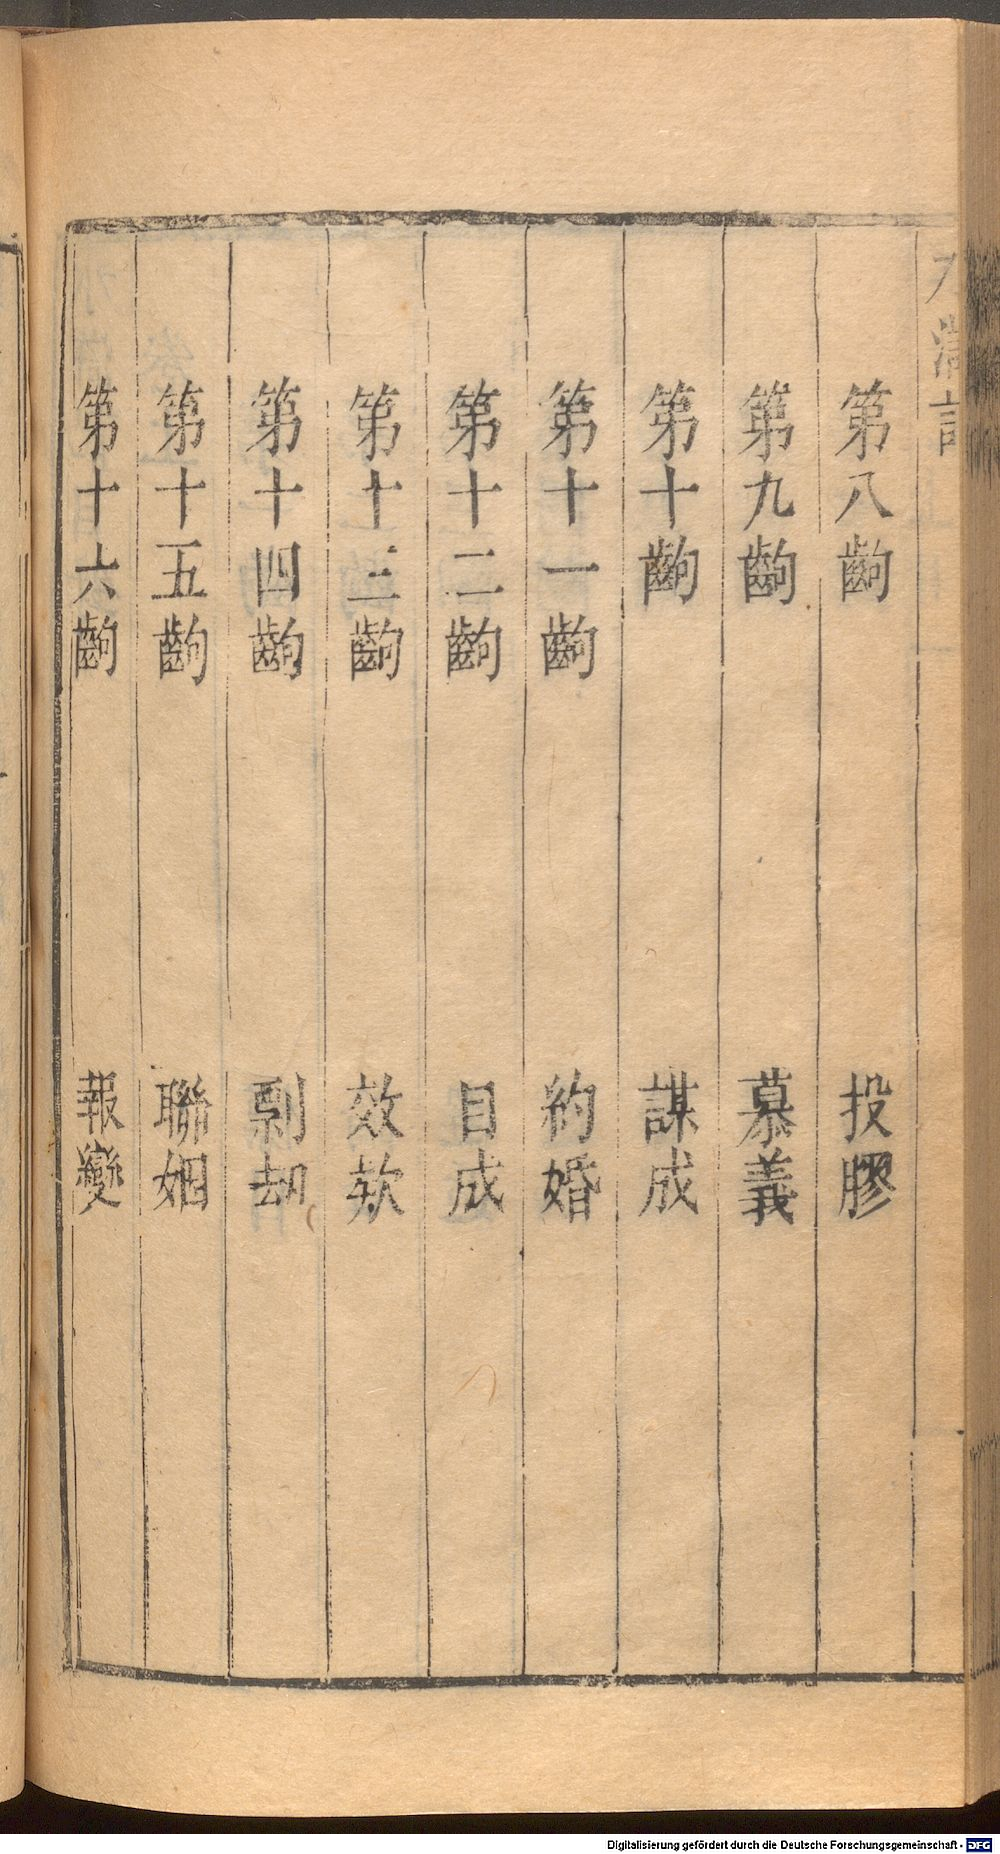 水滸記
第八齣 投膠
第九齣 慕義
第十齣 謀成
第十一齣 約婚
第十二齣 目成
第十三齣 效欵
第十四齣 剽却
第十五齣 聯姻
第十六齣 報變
Digitalisierung gefördert durch die Deutsche Forschungsgemeinschaft - DFG